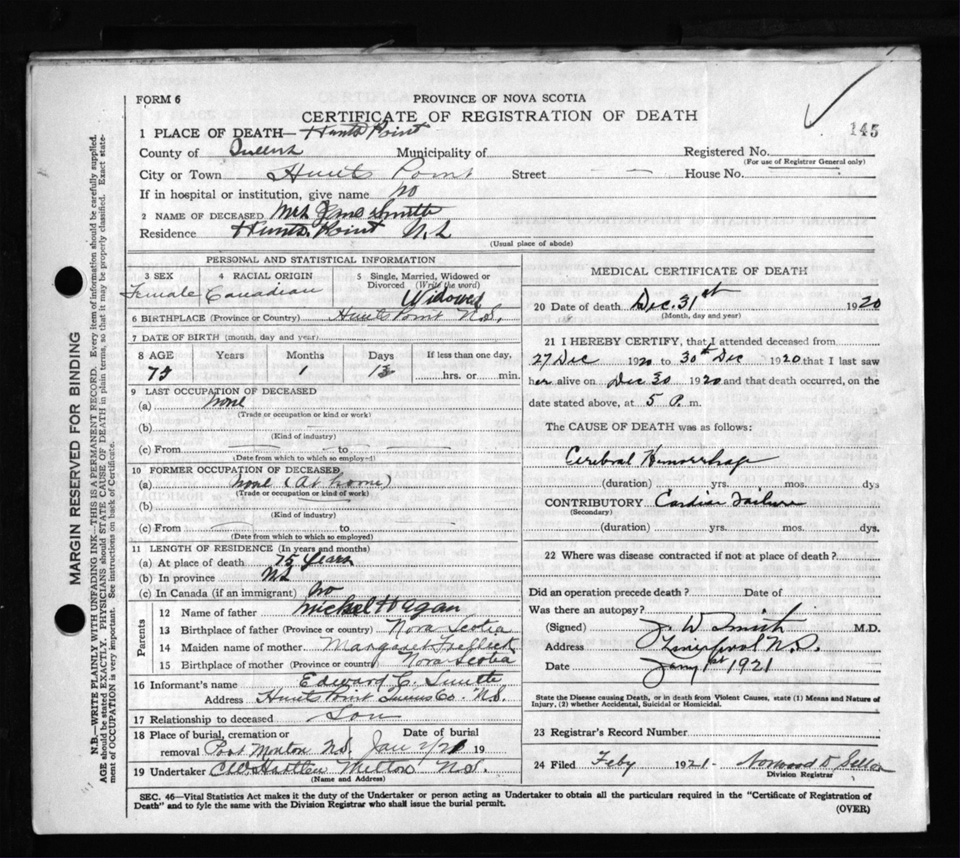 FORM 6
PROVINCE OF NOVA SCOTIA
CERTIFICATE OF REGISTRATION OF DEATH
145
1 PLACE OF DEATH— Hunts Point
County of Queens Municipality of
Registered No.
(For use of Registrar General only)
City or Town Hunts Point Street — — House No.
If in hospital or institution, give name no
2 NAME OF DECEASED Mrs Jane Smith
Residence Hunts Point N.S.
(Usual place of abode)
PERSONAL AND STATISTICAL INFORMATION
3 SEX 4 RACIAL ORIGIN 5 Single, Married, Widowed or Divorced (Write the word)
Female Canadian Widowed
6 BIRTHPLACE (Province or Country) Hunts Point N.S.
7 DATE OF BIRTH (month, day and year)
8 AGE Years Months Days If less than one day,
75 1 13 hrs. or min.
9 LAST OCCUPATION OF DECEASED
(a) none
(Trade or occupation or kind of work)
(b)
(Kind of industry)
(c) From — to —
(Date from which to which so employed)
10 FORMER OCCUPATION OF DECEASED
(a) none (At home)
(Trade or occupation or kind of work)
(b)
(Kind of industry)
(c) From — to —
(Date from which to which so employed)
11 LENGTH OF RESIDENCE (In years and months)
(a) At place of death 75 Years
(b) In province NS
(c) In Canada (if an immigrant) no
Parents
12 Name of father Mickel Hagan
13 Birthplace of father (Province or country) Nova Scotia
14 Maiden name of mother Margaret
15 Birthplace of mother (Province or country) Nova Scotia
16 Informant's name Edward C. Smith
Address Hunts Point Queens Co. N.S.
17 Relationship to deceased Son
18 Place of burial, cremation or removal Port Morton NS. Date of burial Jan 19
19 Undertaker CW Hartlen Milton N.S.
(Name and Address)
MEDICAL CERTIFICATE OF DEATH
20 Date of death Dec. 31st 1920
(Month, day and year)
21 I HEREBY CERTIFY, that I attended deceased from
27 Dec 1920 to 30th Dec 1920 that I last saw
her alive on Dec 30 1920 and that death occurred, on the
date stated above, at 5 P. m.
The CAUSE OF DEATH was as follows:
Cerebral Hemorrhage
(duration) yrs. mos. dys
CONTRIBUTORY Cardiac Failure
(Secondary)
(duration) yrs. mos. dys.
22 Where was disease contracted if not at place of death?
Did an operation precede death? Date of
Was there an autopsy?
(Signed) J. W Smith M.D.
Address Liverpool N.S.
Date Jany 1st 1921
State the Disease causing Death, or in death from Violent Causes, state (1) Means and Nature of
Injury, (2) whether Accidental, Suicidal or Homicidal.
23 Registrar's Record Number
24 Filed Feby 1921 Norwood D
Division Registrar
SEC. 46—Vital Statistics Act makes it the duty of the Undertaker or person acting as Undertaker to obtain all the particulars required in the "Certificate of Registration of
Death" and to fyle the same with the Division Registrar who shall issue the burial permit.
(OVER)
MARGIN RESERVED FOR BINDING
N.B.—WRITE PLAINLY WITH UNFADING INK—THIS IS A PERMANENT RECORD. Every item of information should be carefully supplied.
AGE should be stated EXACTLY. PHYSICIANS should STATE CAUSE OF DEATH in plain terms, so that it may be properly classified. Exact statement
of OCCUPATION is very important. See instructions on back of Certificate.